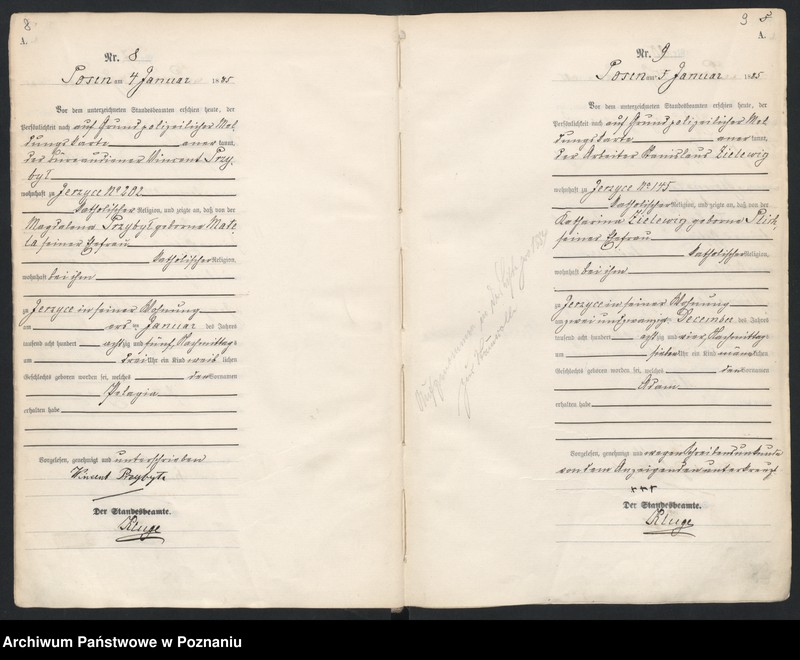 8
A.
Nr. 8
Posen am 4 Januar 1885
Vor dem unterzeichneten Standesbeamten erschien heute, der
Persönlichkeit nach auf Grund polizeilicher Mel
dungskarte anerkannt,
der Bureaudiener Vincent Przy-
byl
wohnhaft zu Jerzyce No 202
katholischer Religion, und zeigte an, daß von der
Magdalena Przybyl geborne
seiner Ehefrau
katholischer Religion,
wohnhaft bei ihm
zu Jerzyce in seiner Wohnung
am ersten Januar des Jahres
tausend acht hundert achtzig und fünf Nachmittags
um drei Uhr ein Kind weiblichen
Geschlechts geboren worden sei, welches den Vornamen
Pelagia
erhalten habe
Vorgelesen, genehmigt und unterschrieben
Vincent Przybyła
Der Standesbeamte.
Kluge
9
A.
Nr. 9
Posen am 5 Januar 1885
Vor dem unterzeichneten Standesbeamten erschien heute, der
Persönlichkeit nach auf Grund polizeilicher Mel
dungskarte anerkannt,
der Arbeiter Stanislaus Zielewig
wohnhaft zu Jerzyce No 145
katholischer Religion, und zeigte an, daß von der
Katharina Zielewig geborne
seiner Ehefrau
katholischer Religion,
wohnhaft bei ihm
zu Jerzyce in seiner Wohnung
am zwei und zwanzigsten December des Jahres
tausend acht hundert achtzig und vier Nachmittags
um sieben Uhr ein Kind männlichen
Geschlechts geboren worden sei, welches den Vornamen
Adam
erhalten habe
Vorgelesen, genehmigt und wegen Schreibensunkunde
von dem Anzeigenden unterkreuzt
+++
Der Standesbeamte.
Kluge
Archiwum Państwowe w Poznaniu